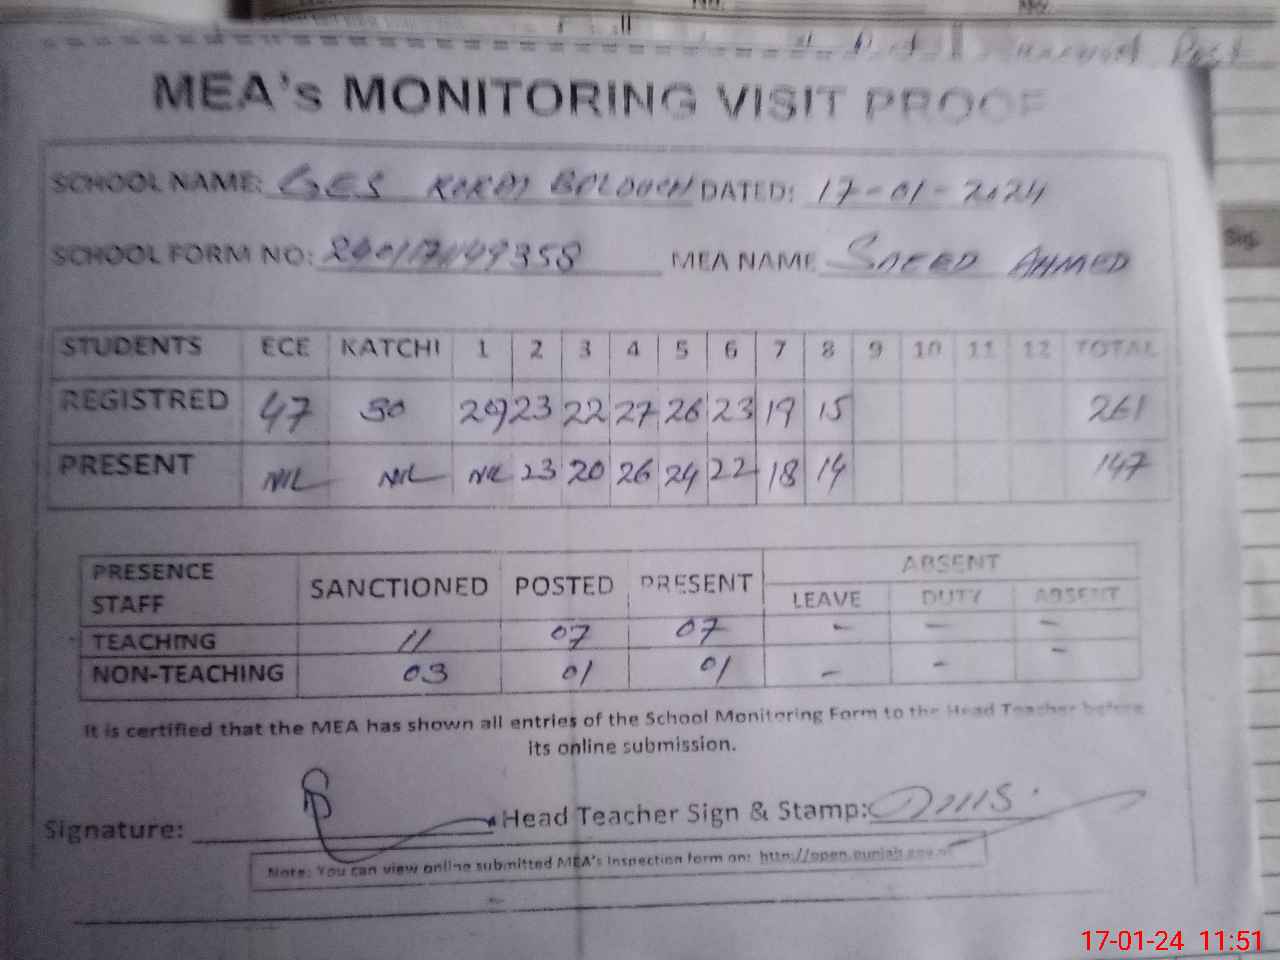 MEA's MONITORING VISIT PROOF
SCHOOL NAME: GES KOROI BOLOUCH DATED: 17-01-2024
SCHOOL FORM NO: MEA NAME SAEED AHMED
STUDENTS ECE KATCHI 1 2 3 4 5 6 7 8 9 10 11 12 TOTAL
REGISTRED 47 30 29 23 22 27 26 23 19 15 261
PRESENT NIL NIL NIL 23 20 26 24 22 18 14 147
PRESENCE STAFF SANCTIONED POSTED PRESENT ABSENT
LEAVE DUTY ABSENT
TEACHING 11 07 07 - - -
NON-TEACHING 03 01 01 - - -
It is certified that the MEA has shown all entries of the School Monitoring Form to the Head Teacher before
its online submission.
Signature: Head Teacher Sign & Stamp:
Note: You can view online submitted MEA's Inspection form on: http://open.punjab.gov.pk
Sig.
17-01-24 11:51